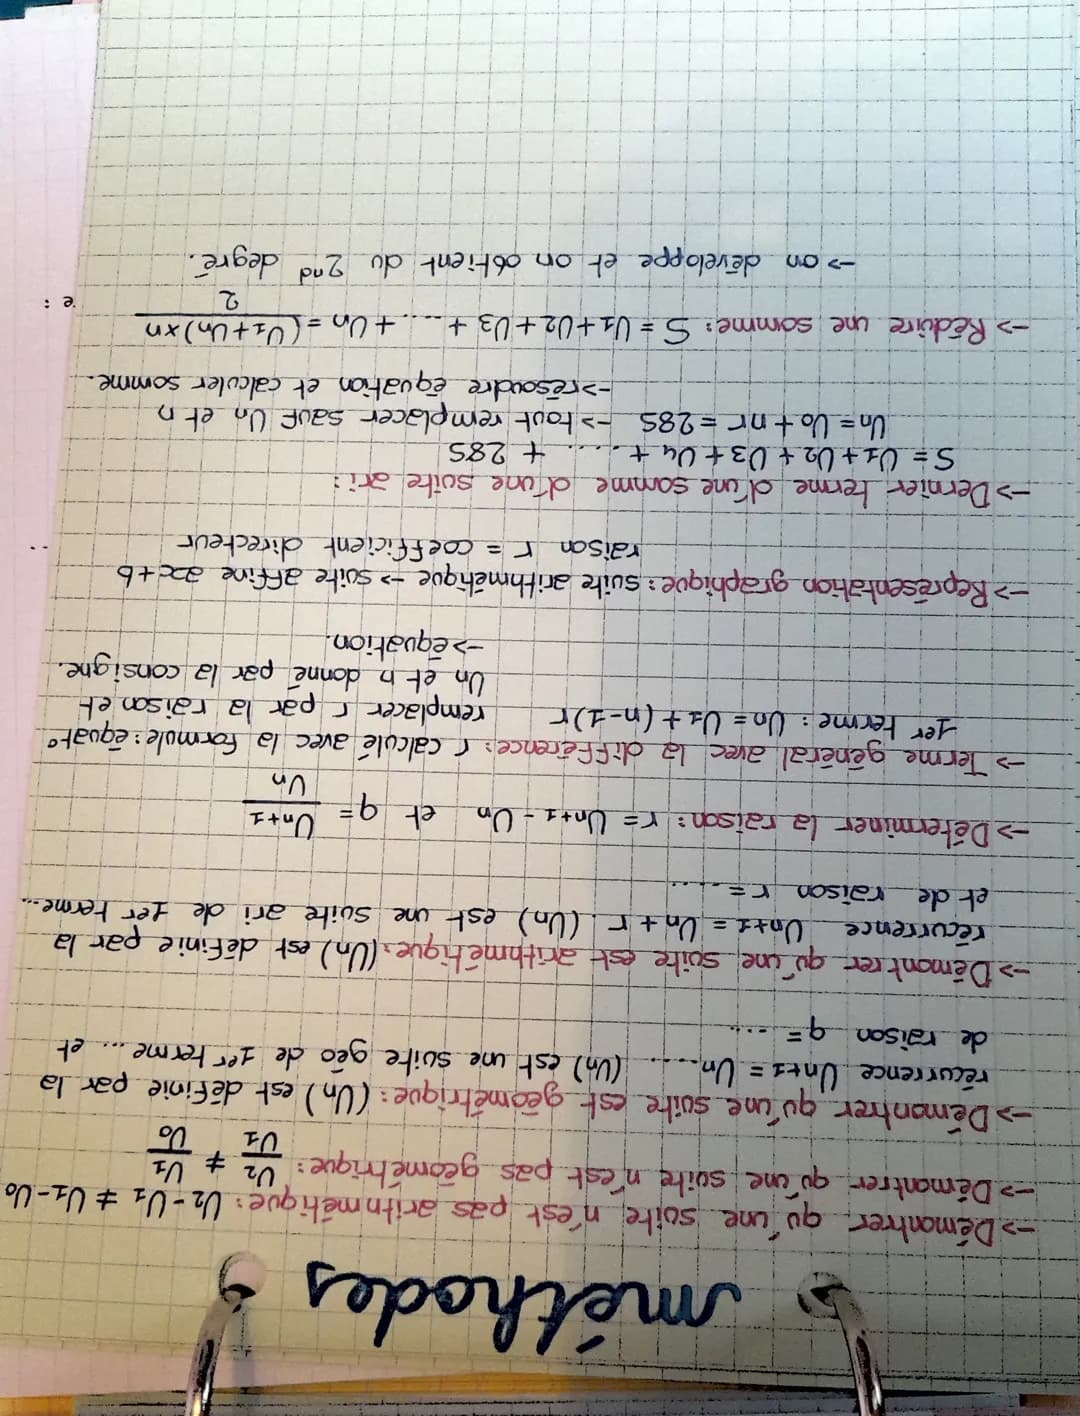 méthodes
-> Démontrer qu'une suite n'est pas arithmétique : U2-U1 ≠ U1-U0
-> Démontrer qu'une suite n'est pas géométrique : U2/U1 ≠ U1/U0
-> Démontrer qu'une suite est géométrique : (Un) est définie par la
récurrence Un+1 = Un..... (Un) est une suite géo de 1er terme ... et
de raison q = ....
-> Démontrer qu'une suite est arithmétique : (Un) est définie par la
récurrence Un+1 = Un + r (Un) est une suite ari de 1er terme...
et de raison r = ....
-> Déterminer la raison : r = Un+1 - Un et q = Un+1/Un
-> Terme général avec la différence : r calculé avec la formule : équat°
1er terme : Un = U1 + (n-1)r remplacer r par la raison et
Un et n donné par la consigne.
-> équation.
-> Représentation graphique : suite arithmétique -> suite affine ax+b
raison r = coefficient directeur
-> Dernier terme d'une somme d'une suite ari :
S = U1 + U2 + U3 + U4 + ..... + 285
Un = U0 + nr = 285 -> tout remplacer sauf Un et n
-> résoudre équation et calculer somme.
-> Réduire une somme : S = U1 + U2 + U3 + ..... + Un = (U1+Un)×n/2
-> on développe et on obtient du 2nd degré.
e :